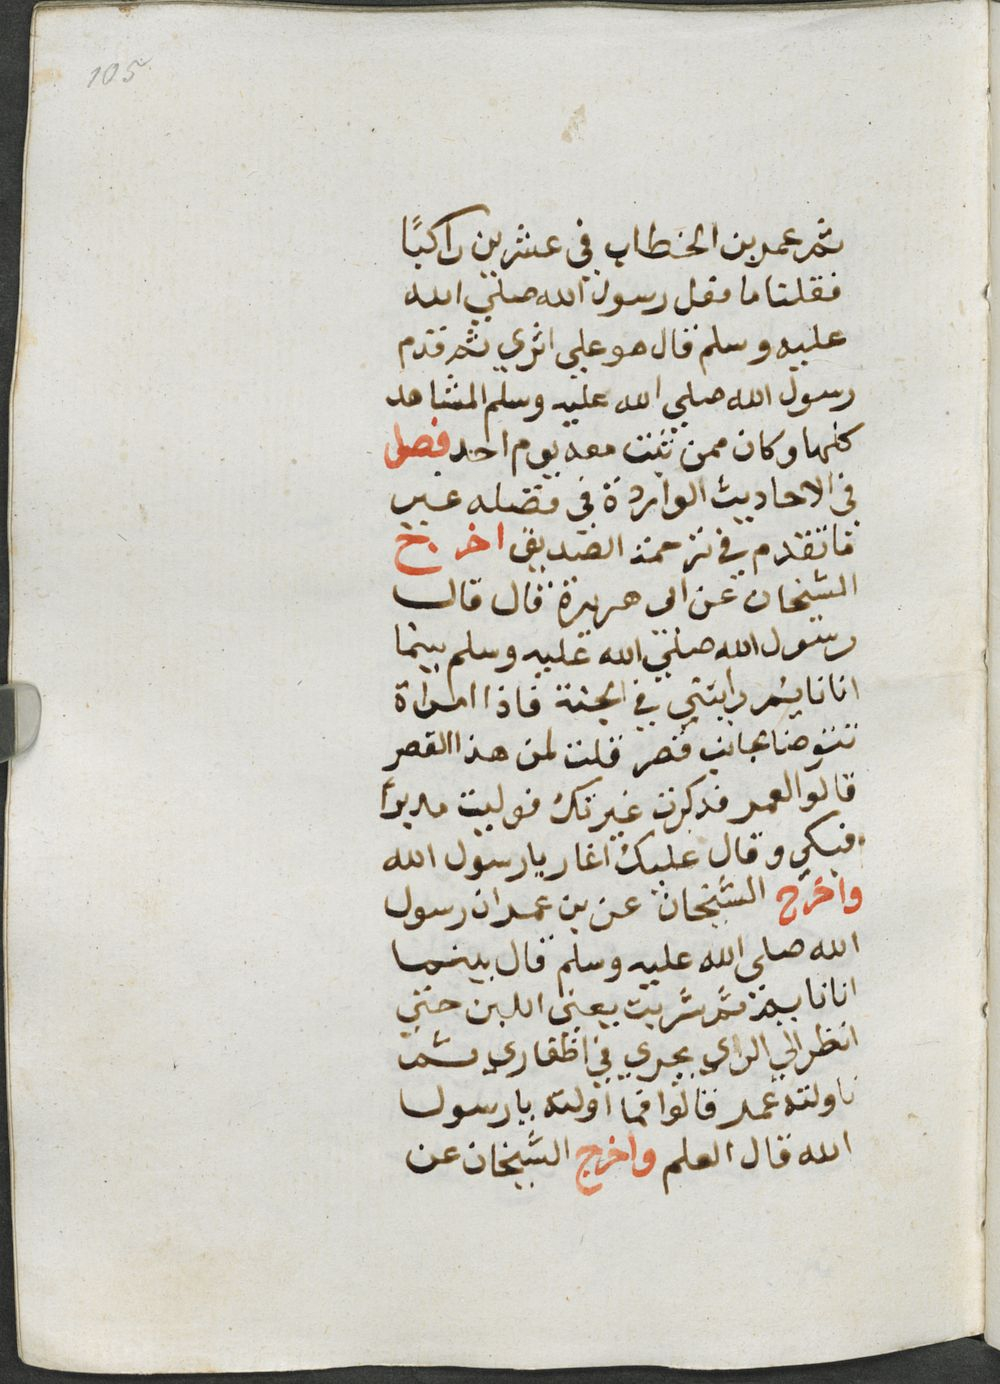 105
ثم عمر بن الخطاب في عشرين راكبًا
فقلنا ما فعل رسول الله صلي الله
عليه وسلم قال هو علي اثري ثم قدم
رسول الله صلي الله عليه وسلم المشاهد
كلها وكان ممن ثبت معه يوم احد فصل
في الاحاديث الواردة في فضله غير
ما تقدم في ترجمة الصديق اخرج
الشيخان عن ابى هريرة قال قال
رسول الله صلي الله عليه وسلم بينما
انا نايم رايتني في الجنة فاذا امراة
تتوضا بجانب قصر قلت لمن هذا القصر
قالوا لعمر فذكرت غيرتك فوليت مدبرًا
فبكي وقال عليك اغار يا رسول الله
واخرج الشيخان عن بن عمر ان رسول
الله صلى الله عليه وسلم قال بينما
انا نايم شربت يعنى اللبن حتي
انظر الي الراي يجري في اظفاري ثم
ناولته عمر قالوا فما اولته يا رسول
الله قال العلم واخرج الشيخان عن